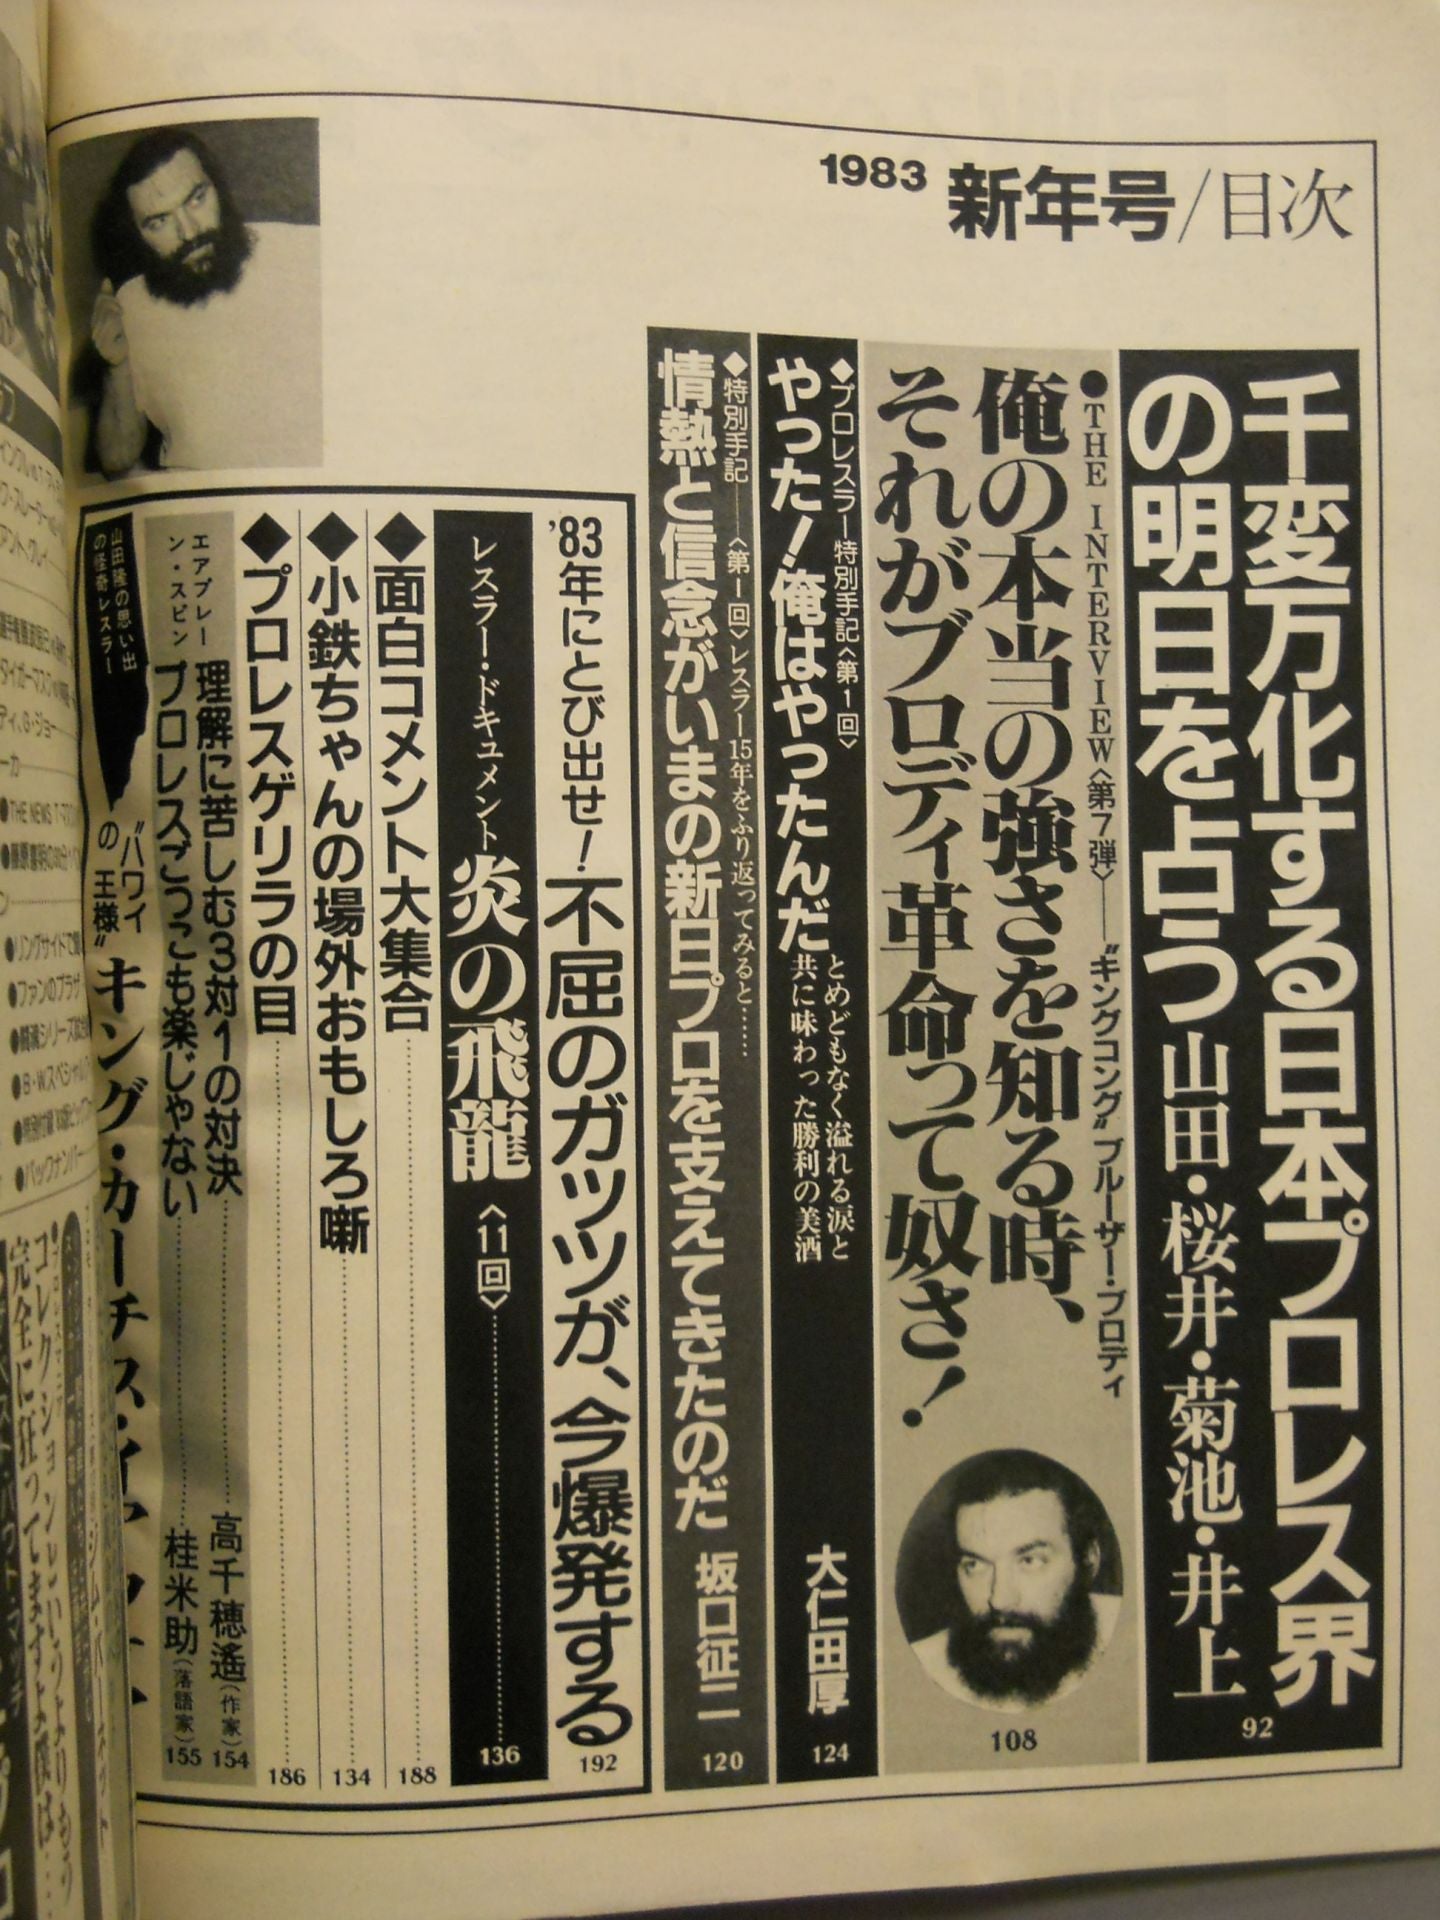 1983 新年号/目次
千変万化する日本プロレス界
の明日を占う 山田・桜井・菊池・井上
92
●THE INTERVIEW〈第7弾〉——〝キングコング〟ブルーザー・ブロディ
俺の本当の強さを知る時、
それがブロディ革命って奴さ!
108
◆プロレスラー特別手記〈第1回〉
やった!俺はやったんだ
とめどもなく溢れる涙と
共に味わった勝利の美酒
大仁田厚
124
◆特別手記——〈第1回〉レスラー15年をふり返ってみると……
情熱と信念がいまの新日プロを支えてきたのだ 坂口征二
120
'83年にとび出せ!不屈のガッツが、今爆発する
192
レスラー・ドキュメント 炎の飛龍〈11回〉
136
◆面白コメント大集合
188
◆小鉄ちゃんの場外おもしろ噺
134
◆プロレスゲリラの目
186
エアプレー
ン・スピン
理解に苦しむ3対1の対決 高千穂遙(作家)154
プロレスごっこも楽じゃない 桂米助(落語家)155
山田隆の思い出
の怪奇レスラー
〝ハワイ
の王様〟
キング・カーチス・
●THE NEWS
●ファンのプラザ
●バックナンバー
コレクションというよりも
完全に狂ってますよ僕は……